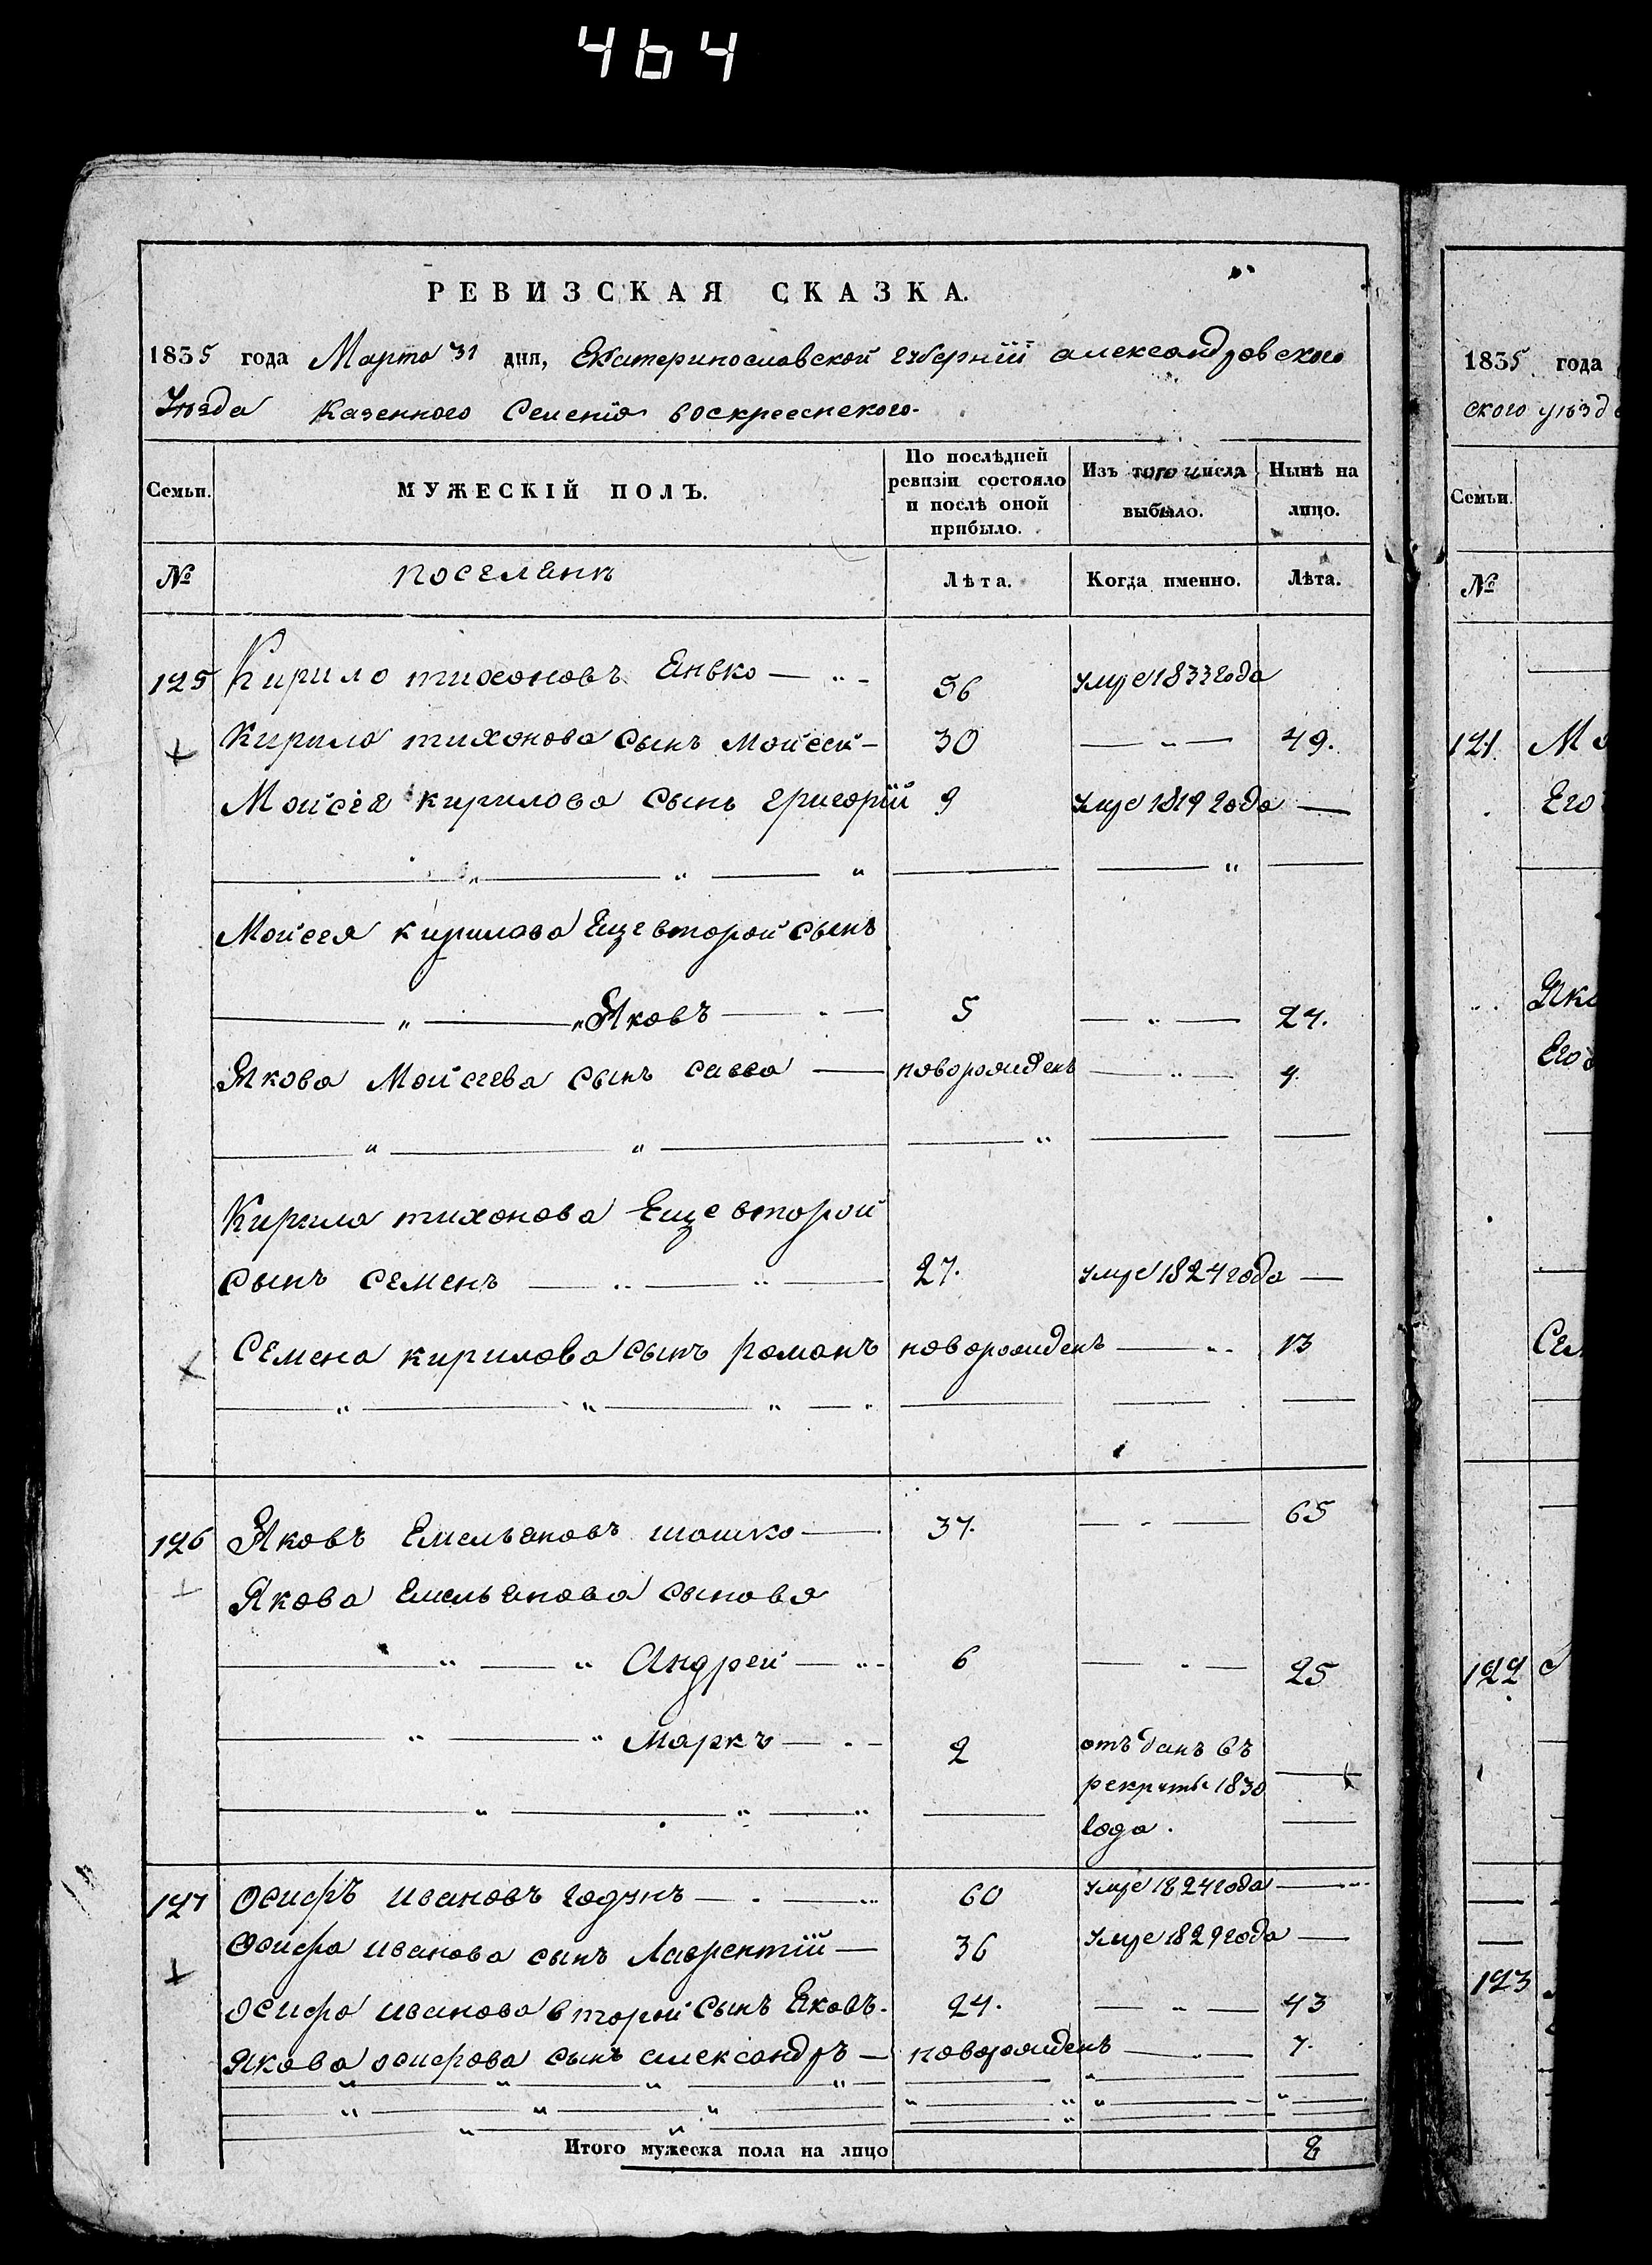 464
РЕВИЗСКАЯ СКАЗКА.
1835 года Марта 31 дня, Екатеринославской губернїи александровского
Уѣзда Казенного Селенїя воскресенского.
Семьи. МУЖЕСКІЙ ПОЛЪ. По послѣдней ревизіи состояло и послѣ оной прибыло. Изъ того числа выбыло. Нынѣ на лицо.
№ поселянъ Лѣта. Когда именно. Лѣта.
125 Кирило тихоновъ Янько 56 умре 1833 года
Кирила тихонова сынъ Мойсей 30 49.
Мойсея кирилова сынъ григорїй 9 умре 1819 года
Мойсея кирилова Еще второй сынъ
Яковъ 5 24.
Якова Мойсеева сынъ савва новорожденъ 4
Кирила тихонова Еще второй
сынъ семенъ 27. умре 1824 года
Семена кирилова сынъ романъ новорожденъ 13
126 Яковъ Емельяновъ шашко 37. 65
Якова Емельянова сыновя
Андрей 6 25
Маркъ 2 отъданъ въ
рекруты 1830
года.
127 Осифъ ивановъ годунъ 60 умре 1824 года
Осифа иванова сынъ Лаврентїй 36 умре 1829 года
Осифа иванова второй сынъ Яковъ. 24. 43
Якова осифова сынъ александръ новорожденъ 7.
Итого мужеска пола на лицо 8
1835 года
ского уѣзд
Семьи.
№
121
Его
122
123